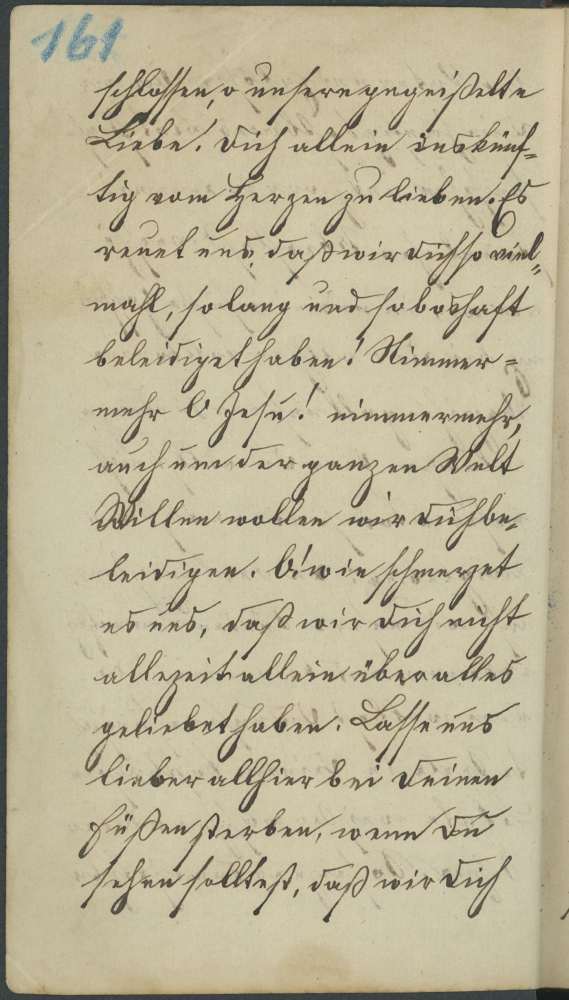 161
schlossen, o unsere gegeißelte
Liebe! dich allein inskünf=
tig vom Herzen zu lieben. Es
reuet uns, daß wir dich so viel=
mahl, so lang und so boshaft
beleidiget haben! Nimmer=
mehr O Jesu! nimmermehr,
auch um der ganzen Welt
Willen wollen wir dich be=
leidigen. O! wie schmerzet
es uns, daß wir dich nicht
allezeit allein über alles
geliebet haben. Lasse uns
lieber allhier bei deinen
Füßen sterben, wenn du
sehen solltest, daß wir dich